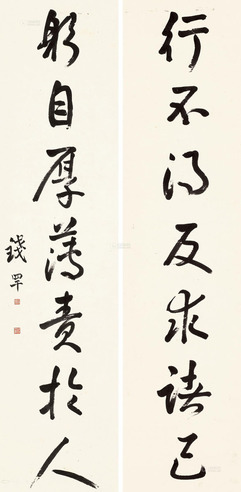 行不得反求诸己
躬自厚薄责於人
钱罕